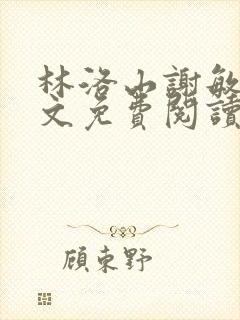 林洛山謝敏
文免費閱讀
顧東野